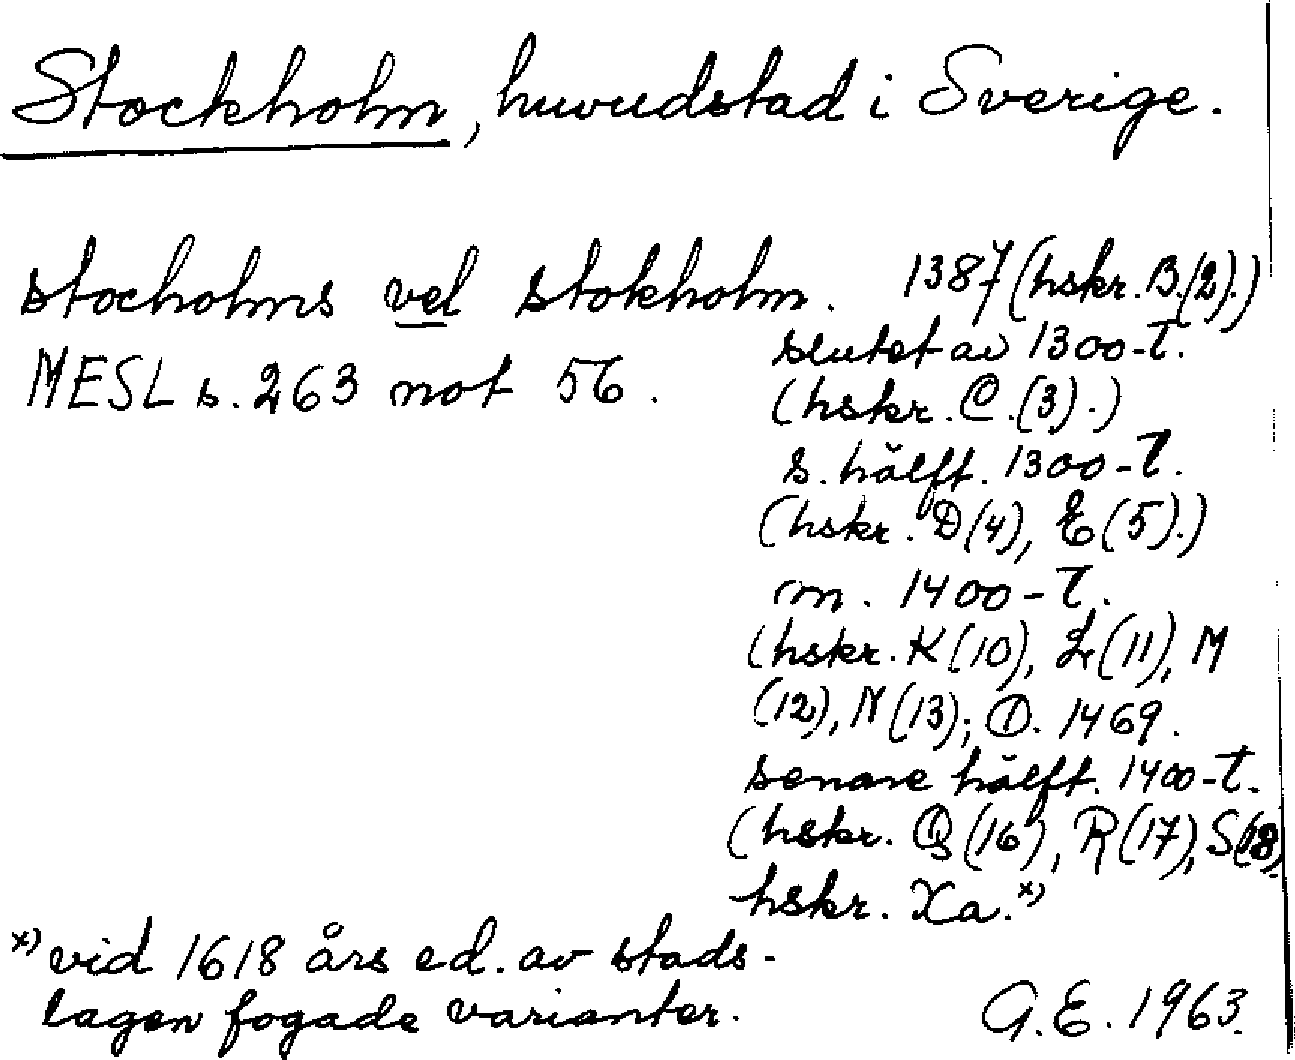 Stockholm, huvudstad i Sverige.
stocholms vel stokholm. 1387 (hskr. B.(2).)
MESL s. 263 not 56.
slutet av 1300-t.
(hskr. C.(3).)
s. hälft. 1300-t.
(hskr. D(4), E(5).)
m. 1400-t.
(hskr. K(10), L(11), M
(12), N(13); O. 1469.
senare hälft. 1400-t.
(hskr. Q(16), R(17), S(18)
hskr. Xa.x)
x) vid 1618 års ed. av stads-
lagen fogade varianter.
G.E. 1963.